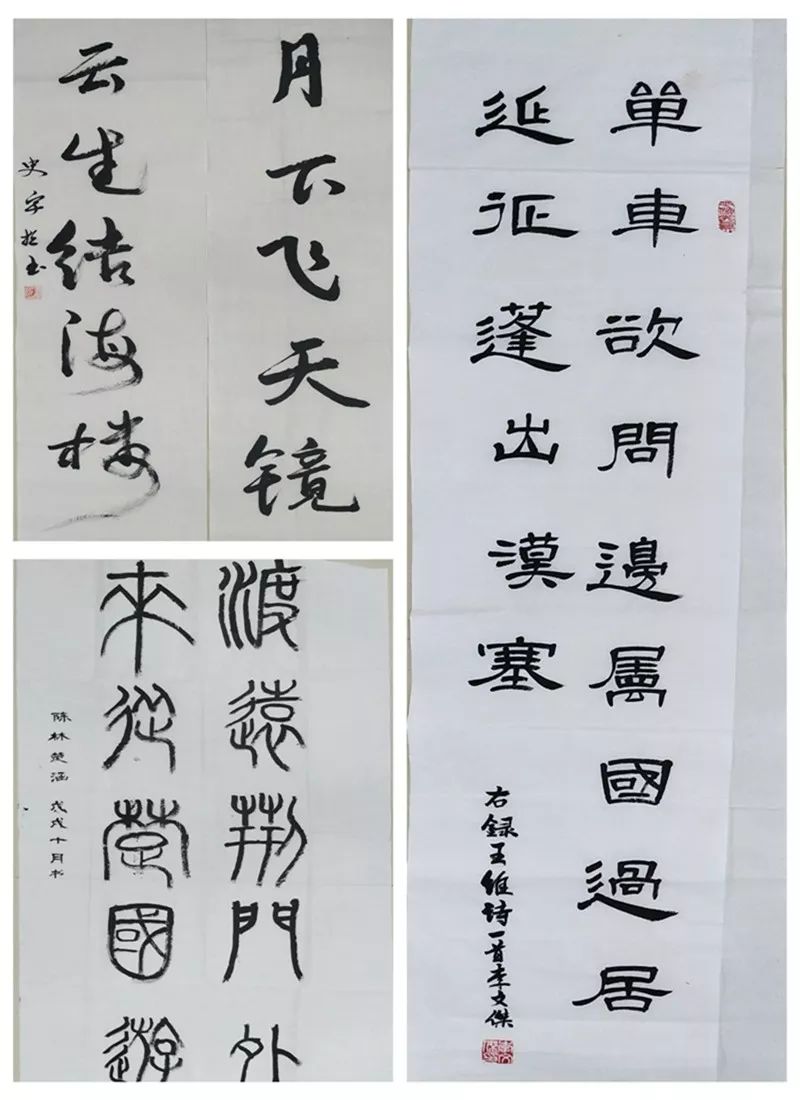 月下飞天镜
云生结海楼
史宇
渡遠荊門外
來從楚國遊
陈林楚涵 戊戌十月书
單車欲問邊屬國過居
延征蓬出漢塞
右録王維诗一首李文傑